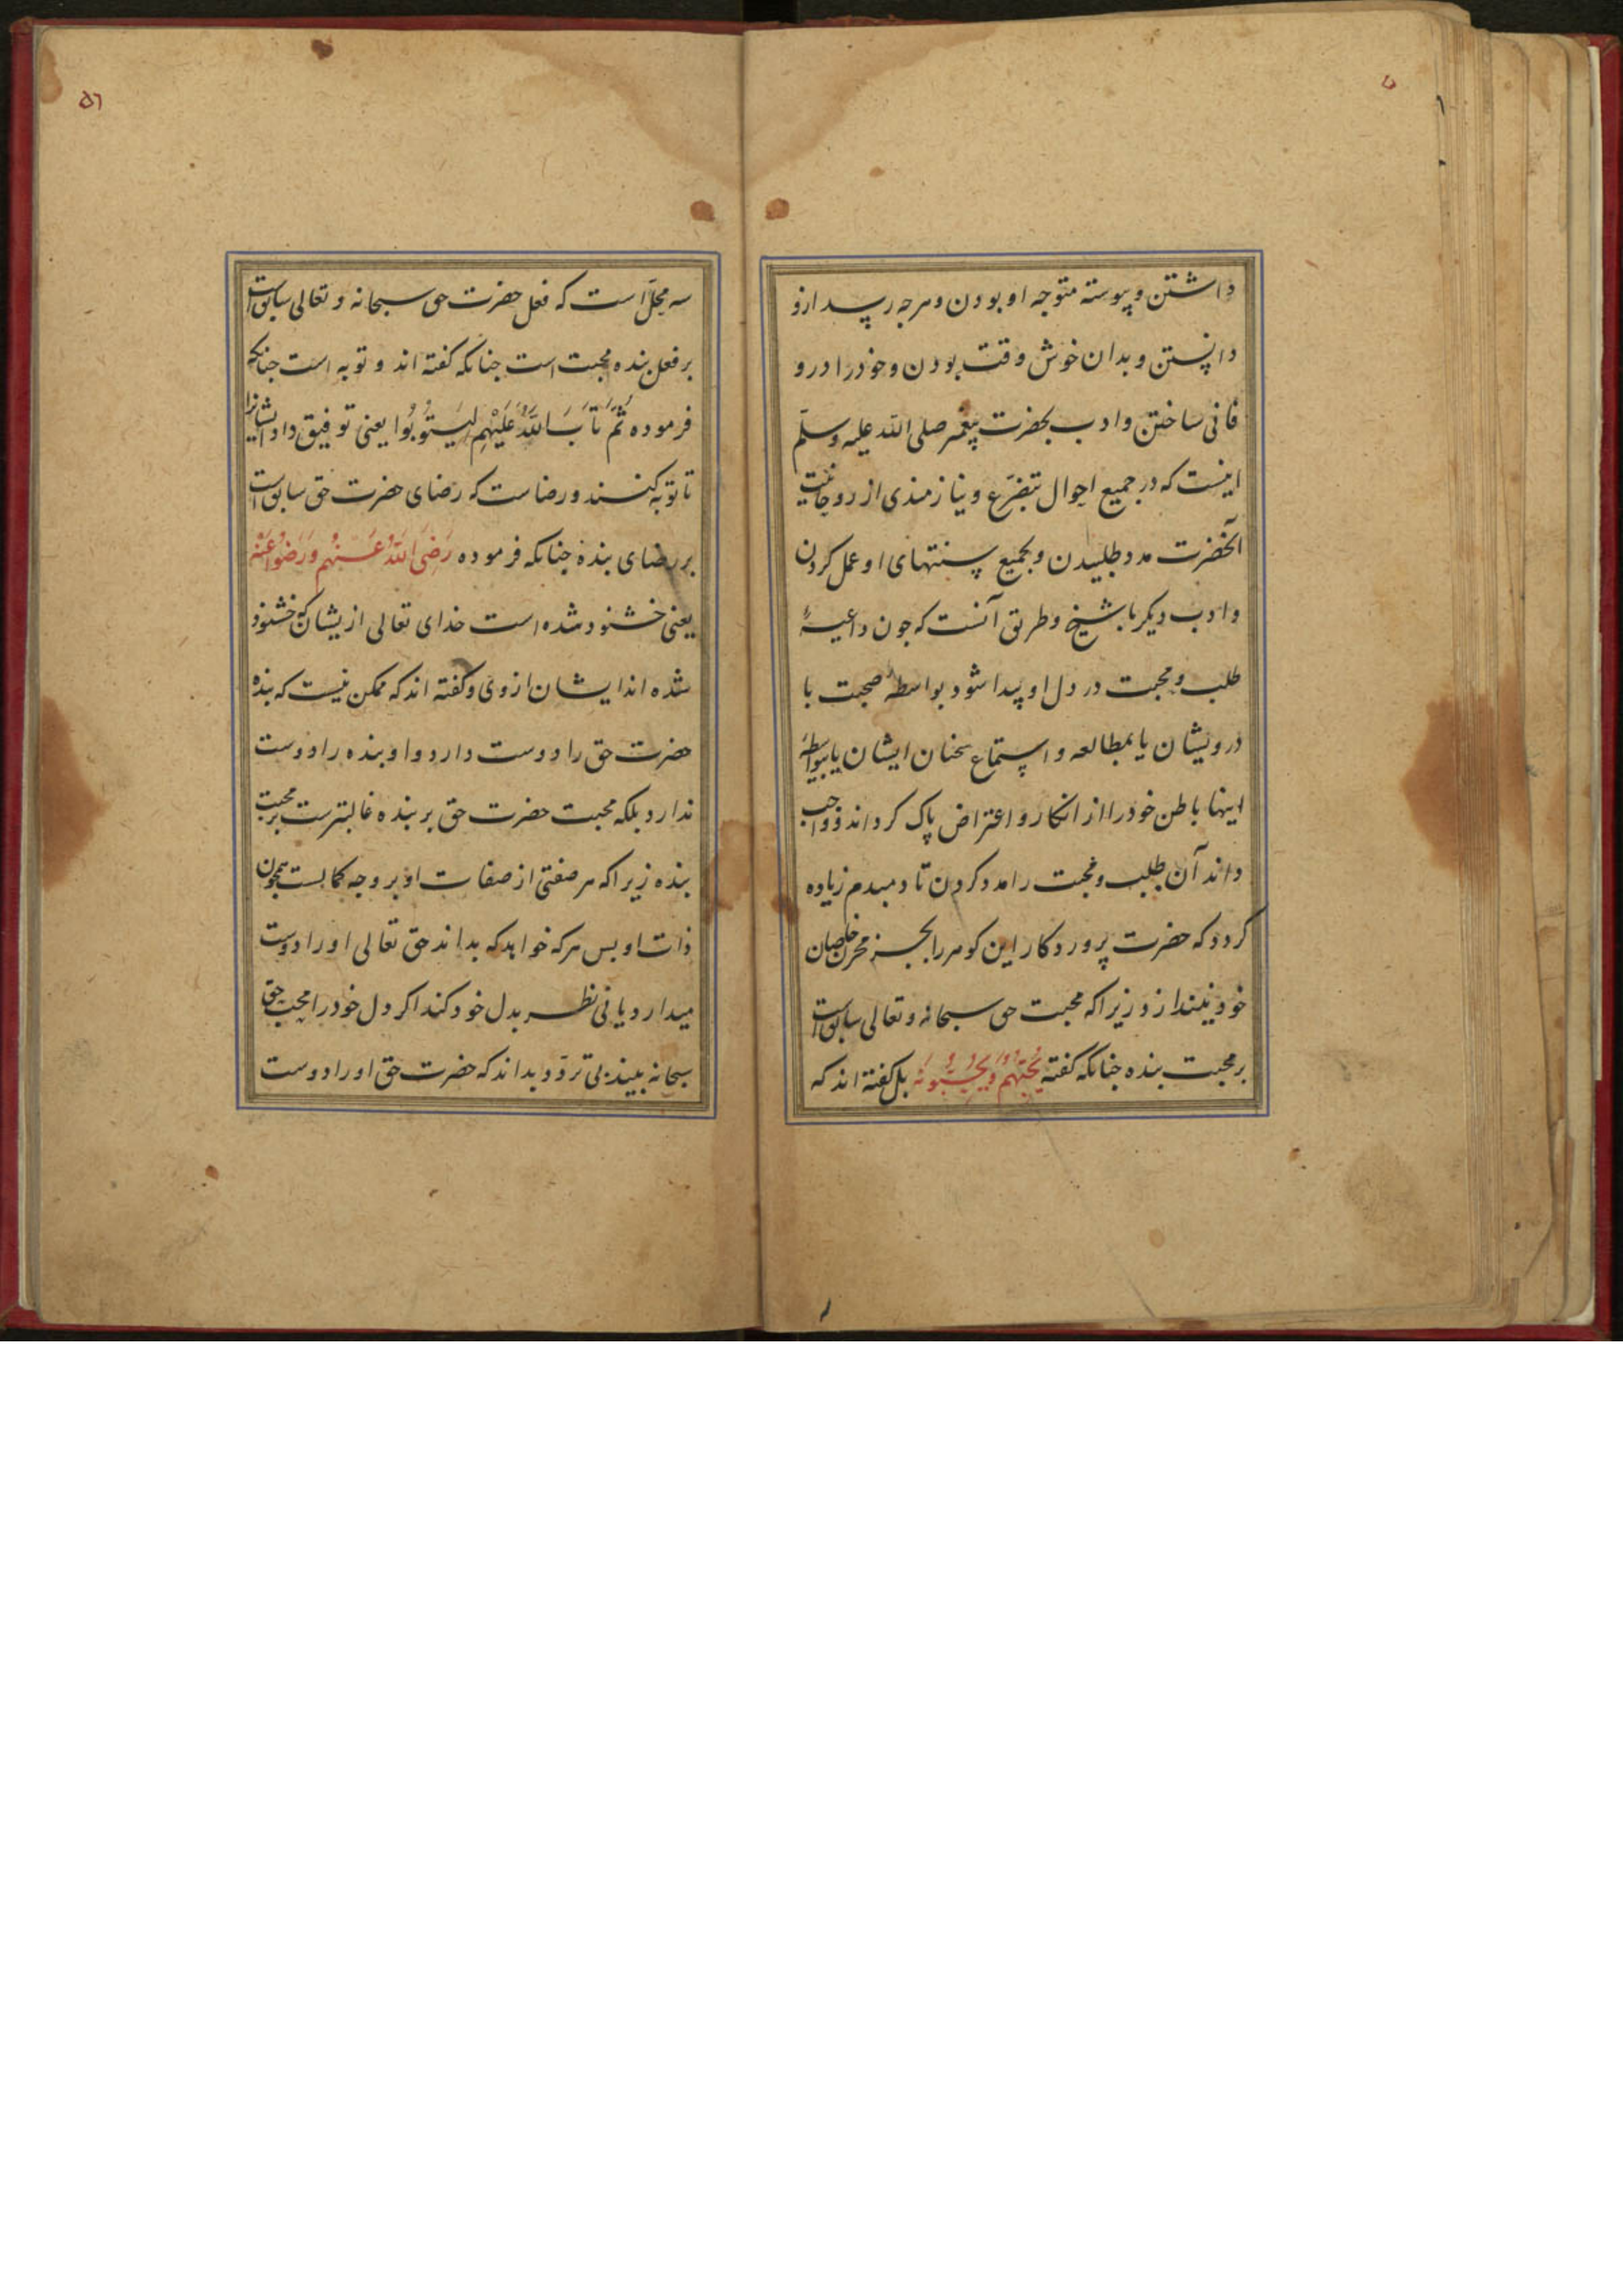 داشتن و پیوسته متوجه او بودن و هرچه رسد ازو
دانستن و بدان خوش وقت بودن و خود را درو
فانی ساختن و ادب بحضرت پیغمبر صلی الله علیه وسلم
اینست که در جمیع احوال بتضرع و نیازمندی از روحانیت
آنحضرت مدد طلبیدن و بجمیع سنتهای او عمل کردن
و ادب دیکر با شیخ و طریق آنست که جون داعیهٔ
طلب و محبت در دل او پیدا شود بواسطهٔ صحبت با
درویشان یا بمطالعه و استماع سخنان ایشان یا بیواسطهٔ
اینها باطن خود را از انکار و اعتراض پاک کرداند و واجب
داند آن طلب و محبت را مدد کردن تا دمبدم زیاده
کردد که حضرت پروردکار این کوهر را بجز در مخزن خاصان
خود ننهد از زیراکه محبت حق سبحانه و تعالی سابق است
بر محبت بنده جنانکه کفته یُحِبُّهُمْ وَیُحِبُّونَهُ بل کفته اند که
۵٦
سه محل است که فعل حضرت حق سبحانه و تعالی سابق است
بر فعل بنده محبت است جنانکه کفته اند و توبه است جنانکه
فرموده ثُمَّ تَابَ اللَّهُ عَلَیْهِم لِیَتُوبُوا یعنی توفیق داد ایشانرا
تا توبه کنند و رضاست که رضای حضرت حق سابق است
بر رضای بنده جنانکه فرموده رَضِیَ اللَّهُ عَنْهُم وَرَضُوا عَنْه
یعنی خشنود شده است خدای تعالی از یشان که خشنود
شده اند ایشان از وی و کفته اند که ممکن نیست که بنده
حضرت حق را دوست دارد و او بنده را دوست
ندارد بلکه محبت حضرت حق بر بنده غالبترست بر محبت
بنده زیراکه هر صفتی از صفات او بر وجه کمالست همجون
ذات او بس هرکه خواهد که بداند حق تعالی او را دوست
میدارد یا نی نظر بدل خود کند اکر دل خود را محب حق
سبحانه بیند بی تردد بداند که حضرت حق او را دوست